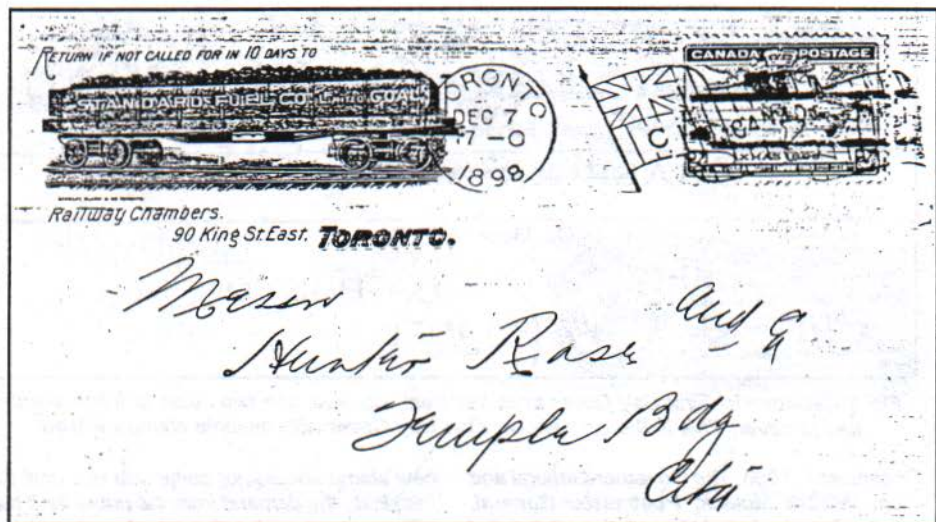 RETURN IF NOT CALLED FOR IN 10 DAYS TO
STANDARD FUEL CO. COAL
Railway Chambers.
90 King St. East. TORONTO.
TORONTO
DEC 7
17 0
1898
CANADA POSTAGE
CANADA
XMAS 1898
Messrs
Hunter Rose and Co
Temple Bdg
City